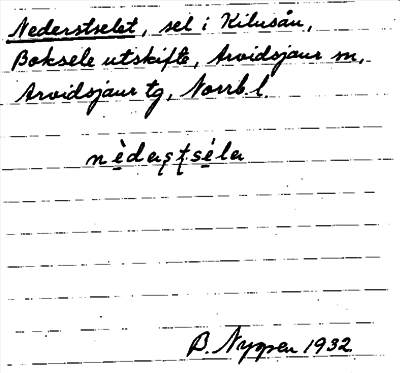 Nederstselet, sel i Kilusån,
Boksele utskifte, Arvidsjaur sn,
Arvidsjaur tg, Norrb.l.
nèdaṣṭséla
B. Nyppen 1932